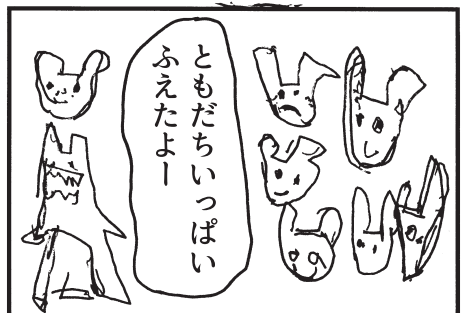 ともだちいっぱい
ふえたよー